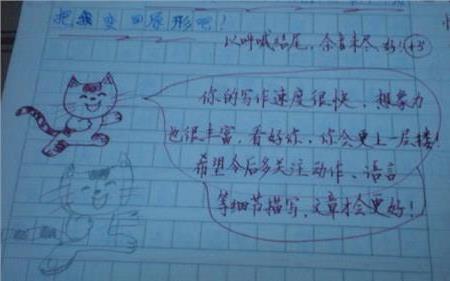 把我变回原形吧！
以叫喊结尾，余音未尽，好！+3
你的写作速度很快，想象力
也很丰富，看好你，你会更上一层楼！
希望今后多关注动作、语言
等细节描写，文章才会更好！